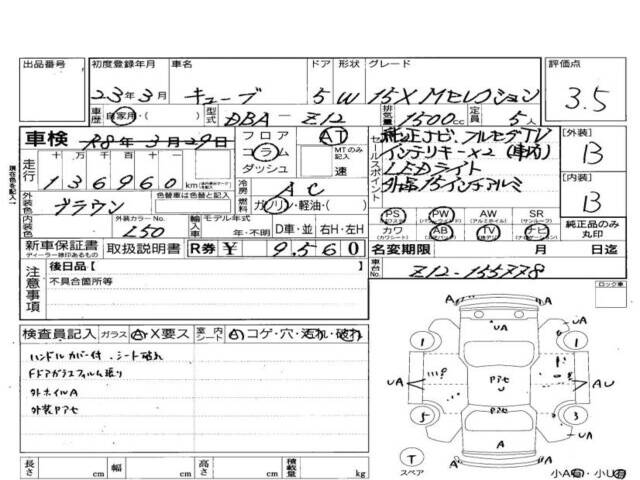 出品番号 初度登録年月 車名 ドア 形状 グレード 評価点
23年3月 キューブ 5 W 15X Mセレクション 3.5
車歴 自家用・( ) 型式 DBA-Z12 排気量 1500cc 定員 5人
車検 R8年3月29日 フロア AT
コラム
ダッシュ MTのみ記入 速
セールスポイント
純正ナビ.フルセグTV
インテリキー×2(車内)
LEDライト
外品15インチアルミ
[外装] B
[内装] B
現在色を記入
走行 十万 千百十
136960 km
外装色 ブラウン 色替車は色替と記入
冷房 AC
燃料 ガソリン・軽油・( )
内装色 外装カラーNo. L50 輸入車 モデル年式 年・不明 D車・並 右H・左H
PS PW AW SR
(パワステ) (パワーウインド) (アルミホイル) (サンルーフ)
カワ AB TV ナビ
(カワシート) (エアバッグ) (ナビゲーション)
純正品のみ丸印
新車保証書 取扱説明書 R券 ¥ 9,560
ディーラー捺印あるもの
名変期限 月 日迄
車台No. Z12-155778
注意事項
後日品【 】
不具合箇所等
ロック車
検査員記入 ガラス A・X要ス 室内シート A コゲ・穴・汚れ・破れ
ハンドルカバー付.シート破れ
FドアガラスフィルムC張り
外ホイルA
外装Pアセ
A A
UA
1 1
UA Pアセ AU
U
5 3
UA
A A
T
スペア
長さ cm 幅 cm 高さ cm 積載量 kg
小A有・小U有